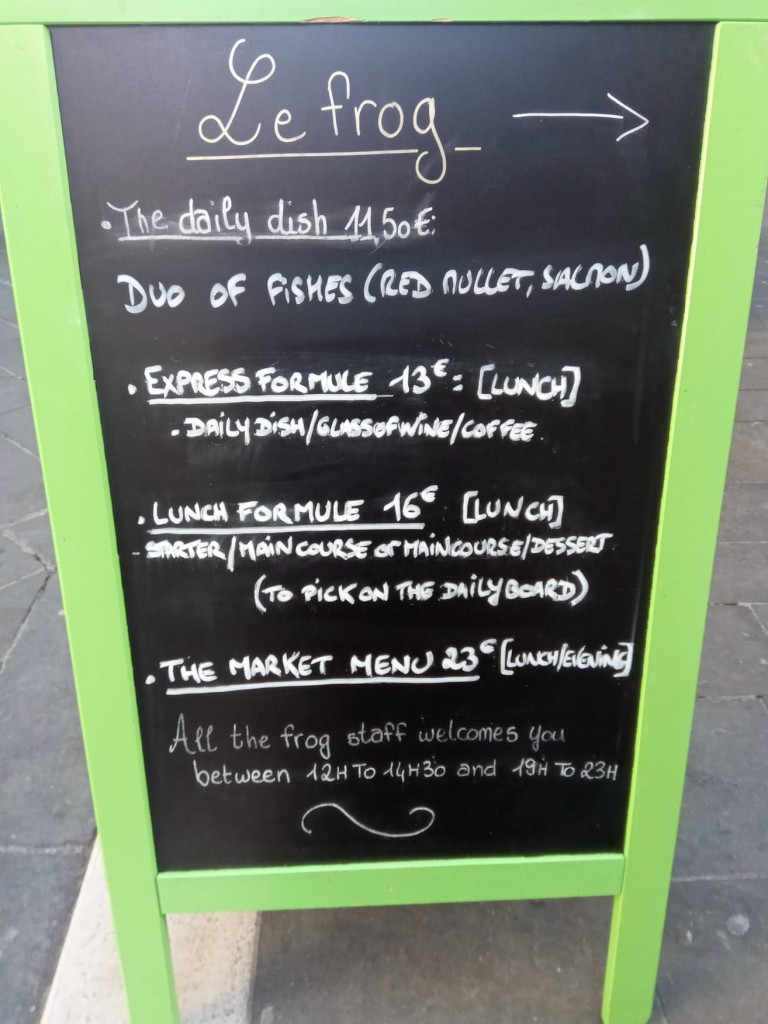 Le frog
• The daily dish 11,50€:
DUO OF FISHES (RED MULLET, SALMON)
• EXPRESS FORMULE 13€ = [LUNCH]
• DAILY DISH/GLASS OF WINE/COFFEE
• LUNCH FORMULE 16€ [LUNCH]
- STARTER/MAIN COURSE or MAIN COURSE/DESSERT
(TO PICK ON THE DAILY BOARD)
• THE MARKET MENU 23€ [LUNCH/EVENING]
All the frog staff welcomes you
between 12H TO 14H30 and 19H TO 23H